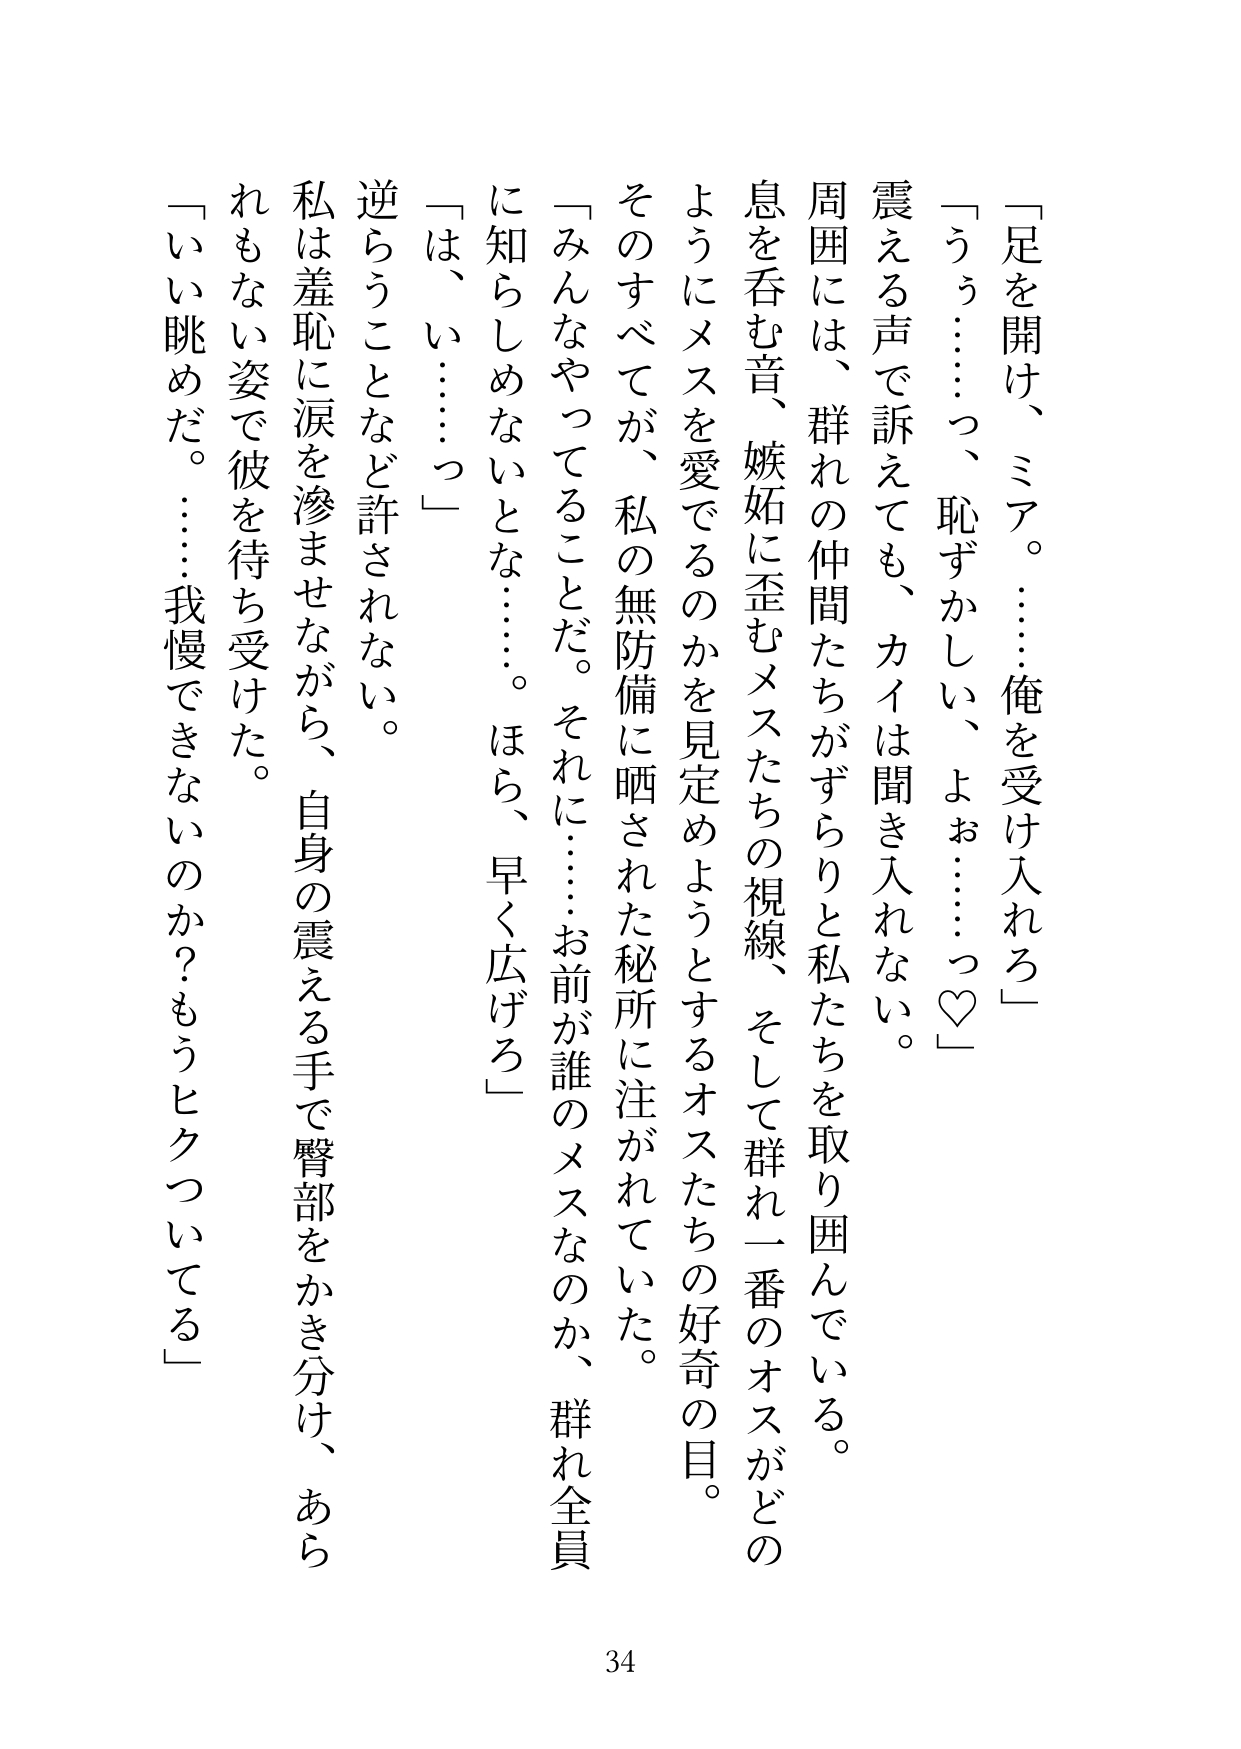 「足を開け、ミア。……俺を受け入れろ」
「うぅ……っ、恥ずかしい、よぉ……っ♡」
震える声で訴えても、カイは聞き入れない。
周囲には、群れの仲間たちがずらりと私たちを取り囲んでいる。
息を呑む音、嫉妬に歪むメスたちの視線、そして群れ一番のオスがどの
ようにメスを愛でるのかを見定めようとするオスたちの好奇の目。
そのすべてが、私の無防備に晒された秘所に注がれていた。
「みんなやってることだ。それに……お前が誰のメスなのか、群れ全員
に知らしめないとな……。ほら、早く広げろ」
「は、い……っ」
逆らうことなど許されない。
私は羞恥に涙を滲ませながら、自身の震える手で臀部をかき分け、あら
れもない姿で彼を待ち受けた。
「いい眺めだ。……我慢できないのか？もうヒクついてる」
34